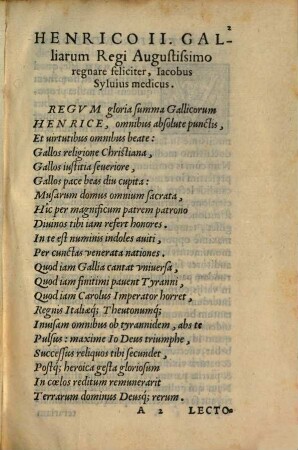 2
HENRICO II. GAL-
liarum Regi Augustissimo
regnare feliciter, Iacobus
Syluius medicus.
REGVM gloria summa Gallicorum
HENRICE, omnibus absolute punctis,
Et uirtutibus omnibus beate:
Gallos religione Christiana,
Gallos iustitia seueriore,
Gallos pace beas diu cupita:
Musarum domus omnium sacrata,
Hic per magnificum patrem patrono
Diuinos tibi iam refert honores.
In te est numinis indoles auiti,
Per cunctas venerata nationes.
Quod iam Gallia cantat vniuersa,
Quod iam finitimi pauent Tyranni,
Quod iam Carolus Imperator horret,
Regnis Italiæq; Theutonumq;
Inuisam omnibus ob tyrannidem, abs te
Pulsus: maxime Io Deus triumphe,
Successus reliquos tibi secundet,
Postq; heroica gesta gloriosum
In cœlos reditum remunerarit
Terrarum dominus Deusq; rerum.
A 2 LECTO